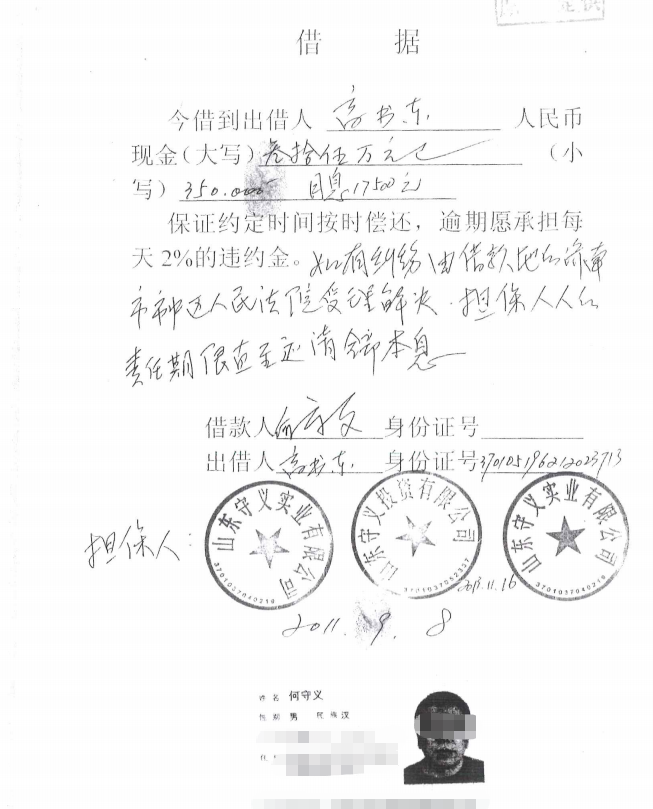 借 据
今借到出借人 高书东 人民币
现金(大写)叁拾伍万元已 (小
写)350.000 月息17500元
保证约定时间按时偿还，逾期愿承担每
天2%的违约金。如有纠纷由借款地的济南
市市中区人民法院受理解决.担保人人的
责任期限直至还清全部本息
借款人 身份证号
出借人 高书东 身份证号370105196212023713
担保人：
山东守义实业有限公司
3701037040219
山东守义投资有限公司
3701037052337
山东守义实业有限公司
3701037040219
2013.11.16
2011. 9. 8
姓名 何守义
性别 男 民族 汉